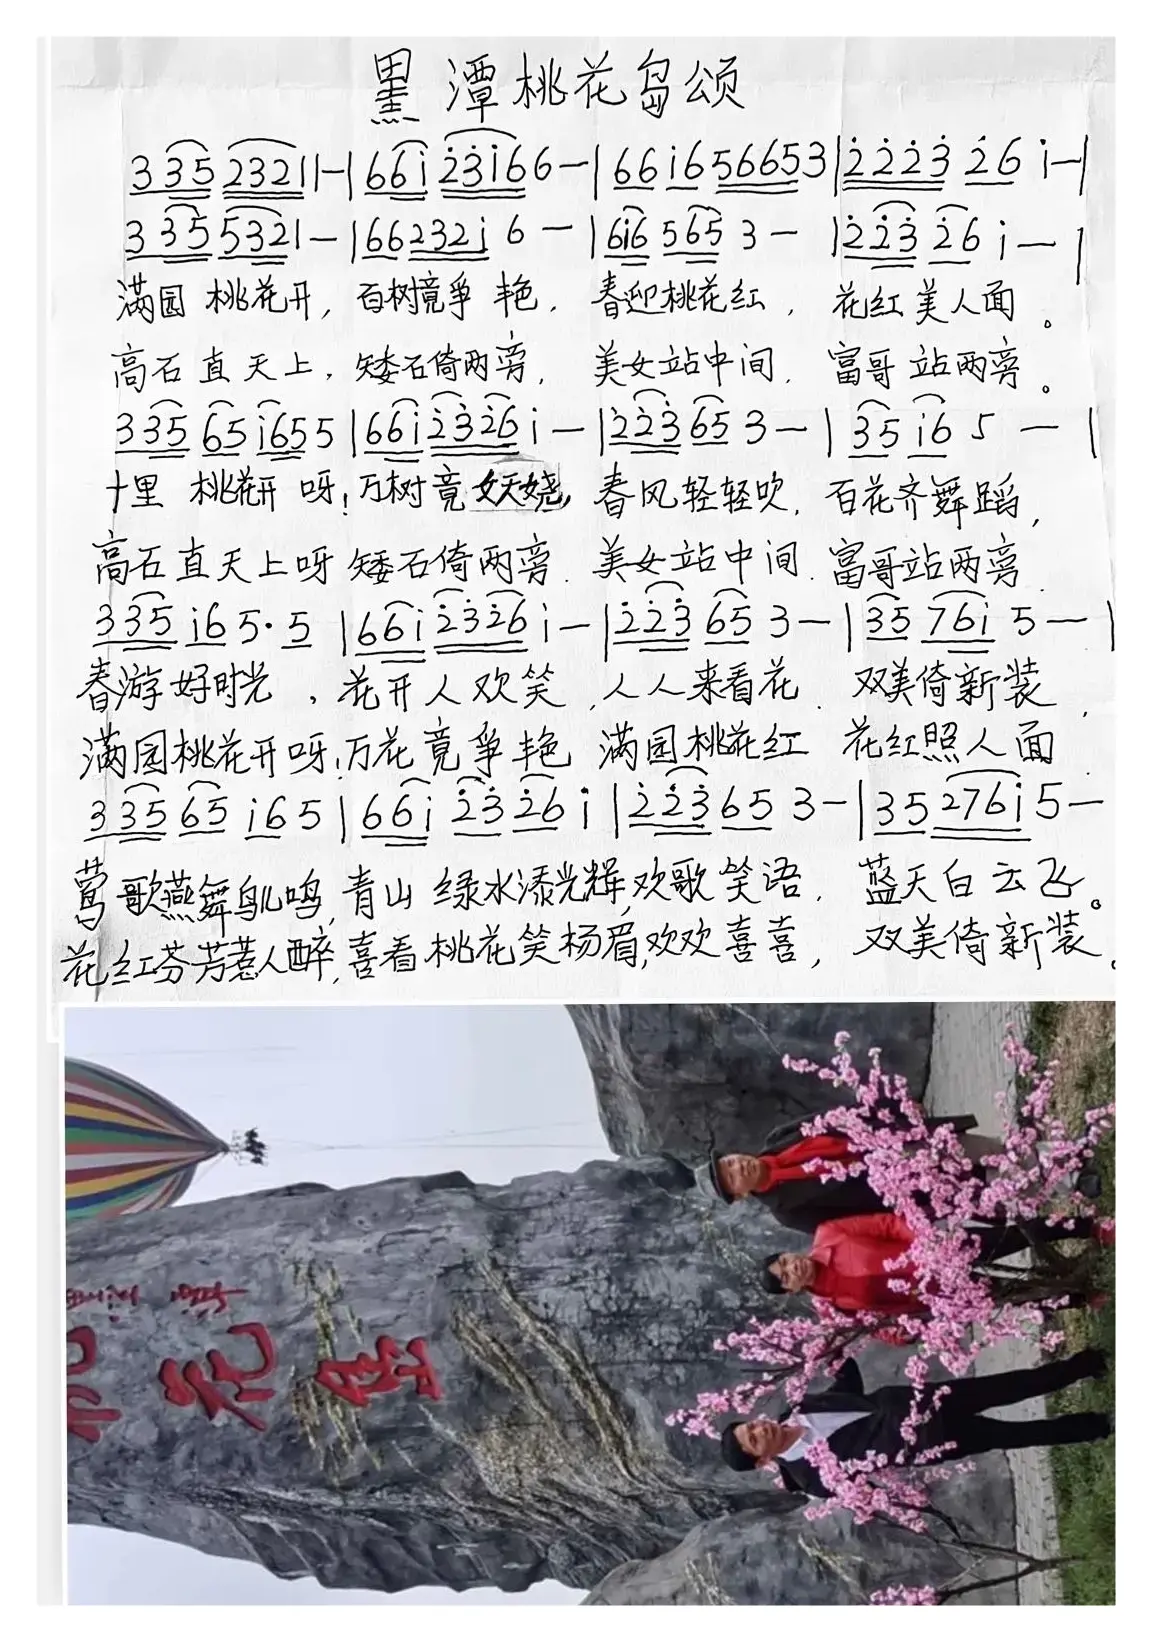 黑潭桃花岛颂
3 3 5 2 3 2 1 1 - | 6 6 i 2̇ 3̇ i 6 6 - | 6 6 i 6 5 6 6 5 3 | 2̇ 2̇ 2̇ 3̇ 2̇ 6 i - |
3 3 5 5 3 2 1 - | 6 6 2 3 2 i 6 - | 6 i 6 5 6 5 3 - | 2̇ 2̇ 3̇ 2̇ 6 i - |
满园桃花开，百树竟争艳，春迎桃花红，花红美人面。
高石直天上，矮石倚两旁，美女站中间，富哥站两旁。
3 3 5 6 5 i 6 5 5 | 6 6 i 2̇ 3̇ 2̇ 6 i - | 2̇ 2̇ 3̇ 6 5 3 - | 3 5 i 6 5 - |
十里桃花开呀！万树竟妖娆，春风轻轻吹，百花齐舞蹈，
高石直天上呀矮石倚两旁.美女站中间.富哥站两旁.
3 3 5 i 6 5 · 5 | 6 6 i 2̇ 3̇ 2̇ 6 i - | 2̇ 2̇ 3̇ 6 5 3 - | 3 5 7 6 i 5 - |
春游好时光，花开人欢笑，人人来看花.双美倚新装，
满园桃花开呀！万花竟争艳 满园桃花红 花红照人面
3 3 5 6 5 i 6 5 | 6 6 i 2̇ 3̇ 2̇ 6 i | 2̇ 2̇ 3̇ 6 5 3 - | 3 5 2 7 6 i 5 -
莺歌燕舞鸟儿鸣，青山绿水添光辉，欢歌笑语，蓝天白云飞。
花红芬芳惹人醉，喜看桃花笑杨眉，欢欢喜喜，双美倚新装。
黑潭
桃花岛